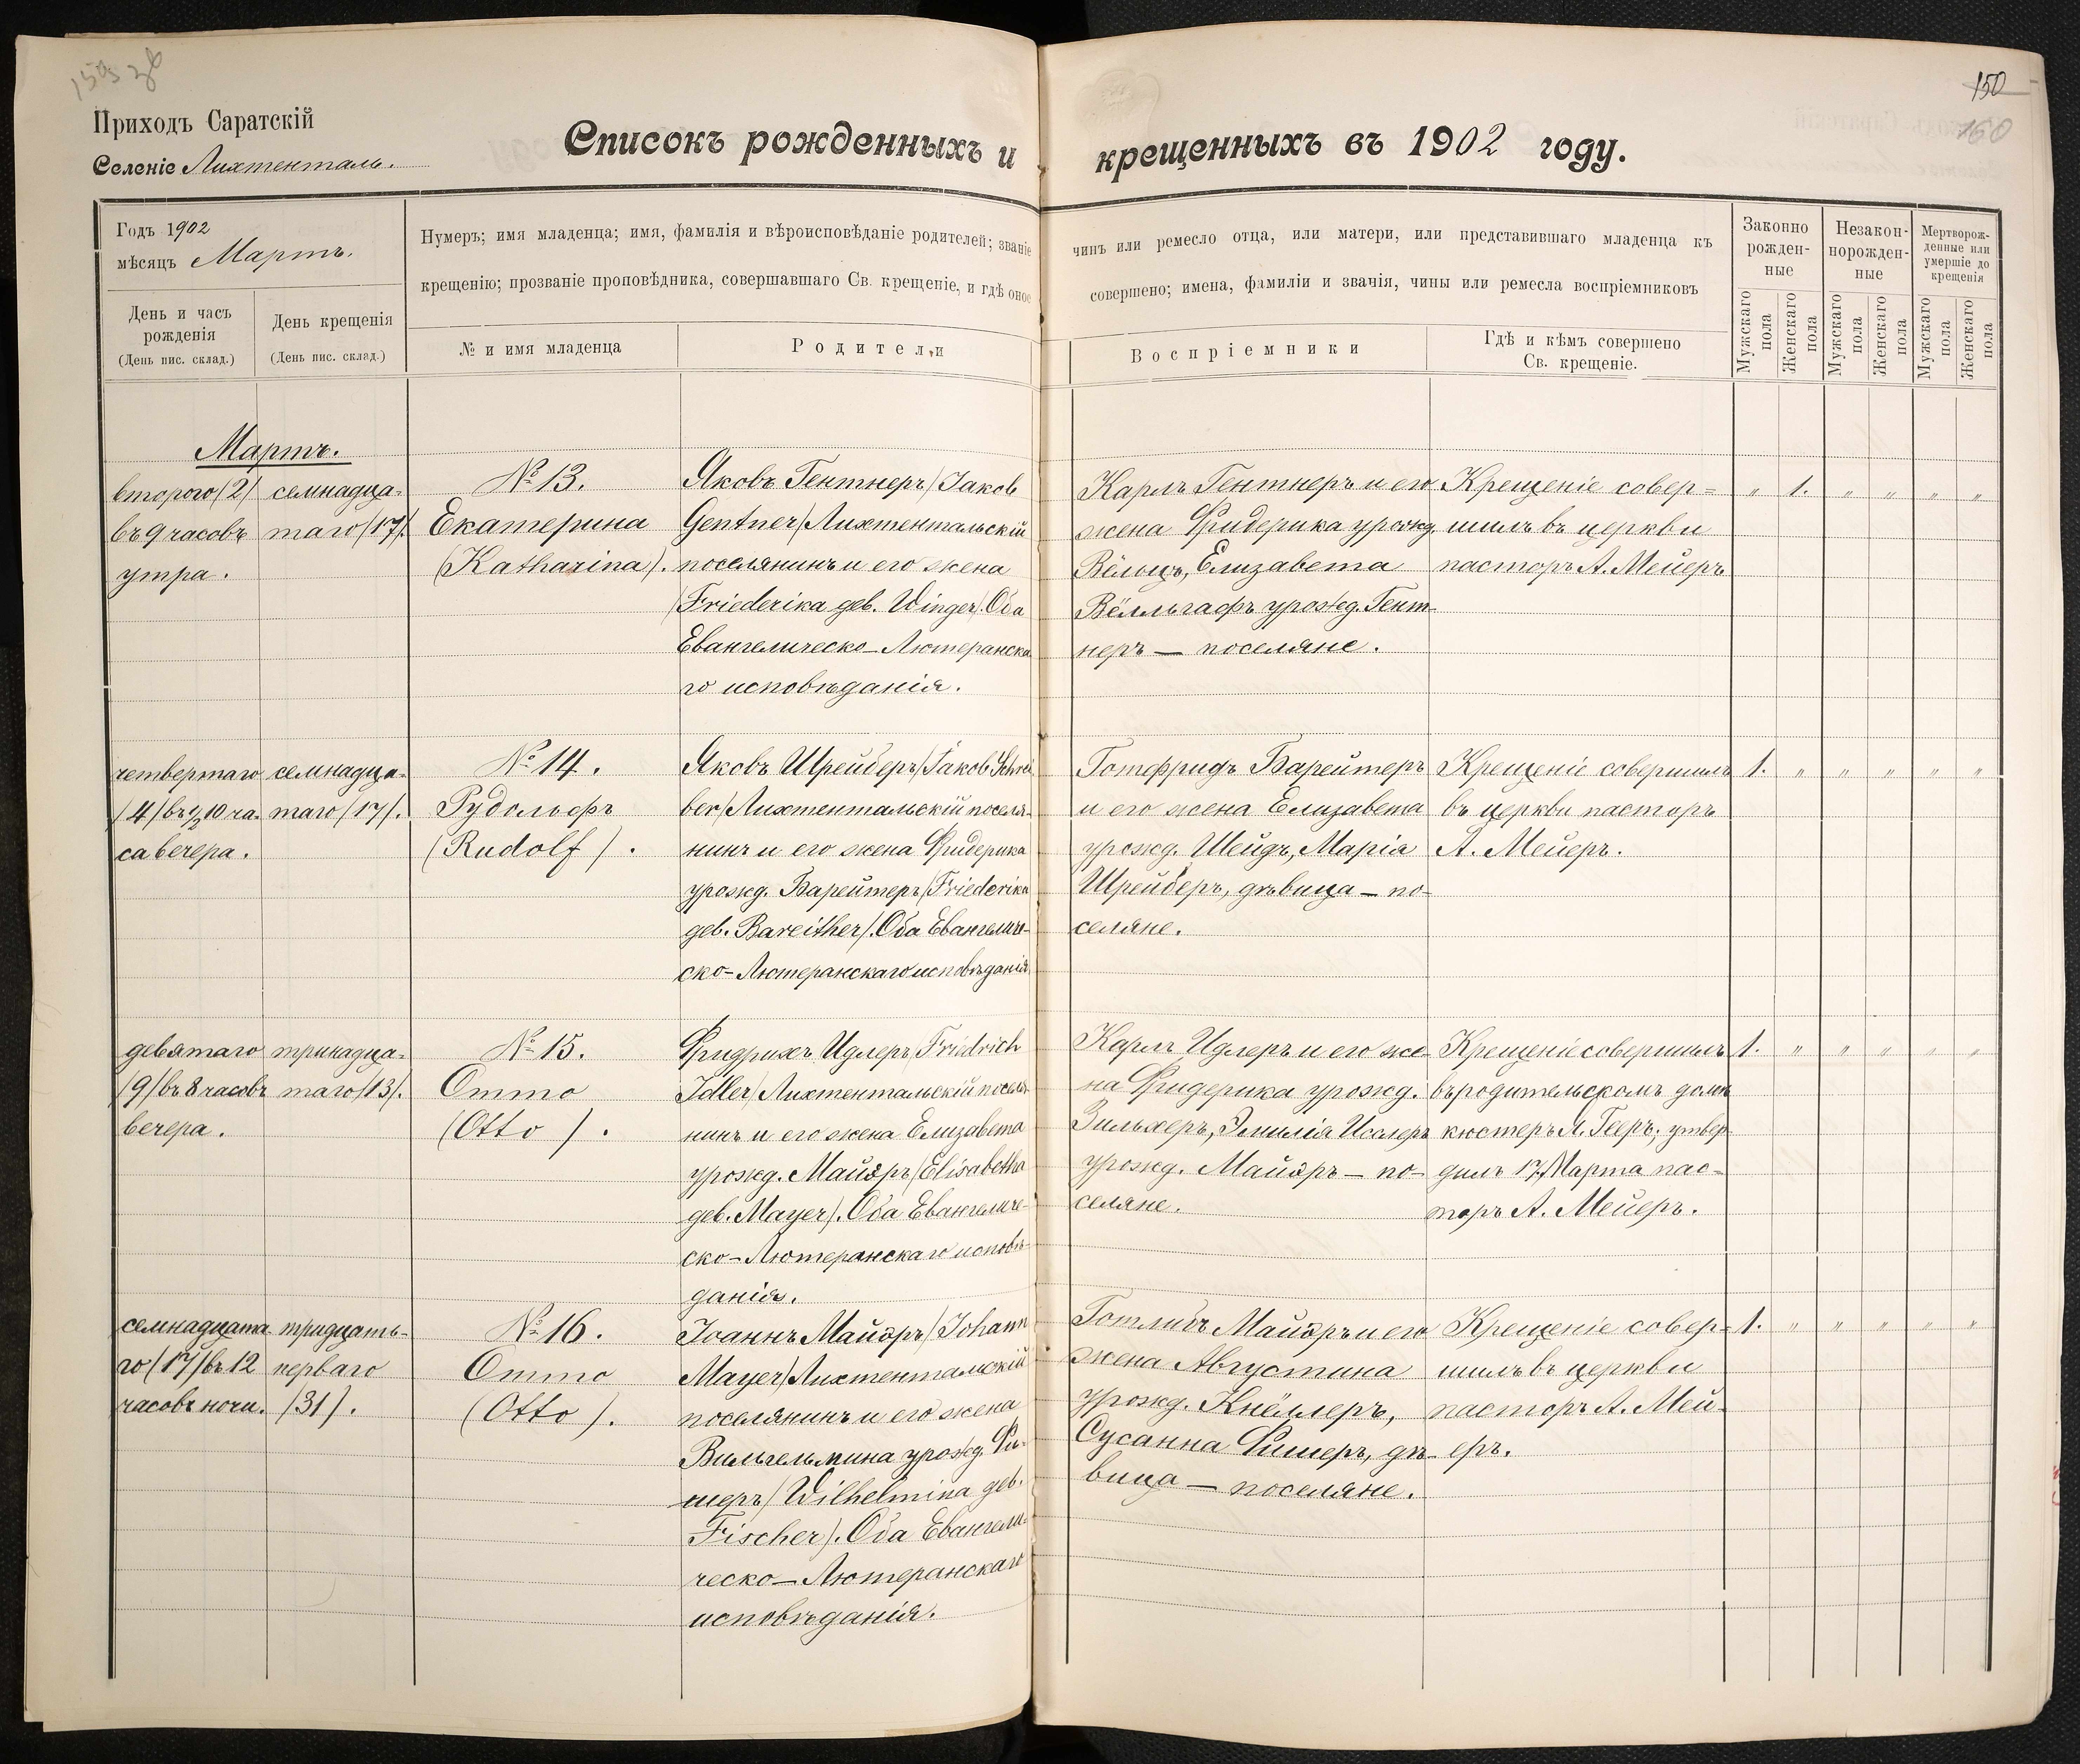 159 зб
150
160
Приходъ Саратскій
Селеніе Лихтенталь.
Списокъ рожденныхъ и крещенныхъ въ 1902 году.
Годъ 1902
мѣсяцъ Мартъ.
Нумеръ; имя младенца; имя, фамилія и вѣроисповѣданіе родителей; званіе
чинъ или ремесло отца, или матери, или представившаго младенца къ
крещенію; прозваніе проповѣдника, совершавшаго Св. крещеніе, и гдѣ оное
совершено; имена, фамиліи и званія, чины или ремесла воспріемниковъ
Законно
рожден-
ные
Незакон-
норожден-
ные
Мертворож-
денные или
умершіе до
крещенія
День и часъ
рожденія
(День пис. склад.)
День крещенія
(День пис. склад.)
№ и имя младенца
Родители
Воспріемники
Гдѣ и кѣмъ совершено
Св. крещеніе.
Мужскаго
пола
Женскаго
пола
Мужскаго
пола
Женскаго
пола
Мужскаго
пола
Женскаго
пола
Мартъ.
второго /2/
въ 9 часовъ
утра.
семнадца-
таго /17/.
№ 13.
Екатерина
(Katharina).
Яковъ Гентнеръ /Jakob
Gentner/ Лихтентальскій
поселянинъ и его жена
/Friederika geb. Winger/. Оба
Евангелическо-Лютеранска
го исповѣданія.
Карлъ Гентнеръ и его
жена Фридерика урожд.
Вёльцъ, Елизавета
Вёлльгафъ урожд. Гент-
неръ — поселяне.
Крещеніе совер-
шилъ въ церкви
пасторъ А. Мейеръ
" 1. " " " "
четвертаго
/4/ въ 1/2 10 ча-
са вечера.
семнадца-
таго /17/.
№ 14.
Рудольфъ
(Rudolf).
Яковъ Шрейберъ /Jakob Schrei
ber/ Лихтентальскій поселя-
нинъ и его жена Фридерика
урожд. Барейтеръ /Friederika
geb. Bareither/. Оба Евангеличе-
ско-Лютеранскаго исповѣданія.
Готфридъ Барейтеръ
и его жена Елизавета
урожд. Шейдъ, Марія
Шрейберъ, дѣвица — по-
селяне.
Крещеніе совершилъ
въ церкви пасторъ
А. Мейеръ.
1. " " " " "
девятаго
/9/ въ 8 часовъ
вечера.
тринадца-
таго /13/.
№ 15.
Отто
(Otto).
Фридрихъ Идлеръ /Friedrich
Idler/ Лихтентальскій поселя-
нинъ и его жена Елизавета
урожд. Майэръ /Elisabetha
geb. Mayer/. Оба Евангеличе-
ско-Лютеранскаго исповѣ-
данія.
Карлъ Идлеръ и его же-
на Фридерика урожд.
Зильхеръ, Эмилія Исслеръ
урожд. Майэръ — по-
селяне.
Крещеніе совершилъ
въ родительскомъ домѣ
кюстеръ Я. Гееръ; утвер-
дилъ 17 Марта пас-
торъ А. Мейеръ.
1. " " " " "
семнадцата-
го /17/ въ 12
часовъ ночи.
тридцать-
перваго
/31/.
№ 16.
Отто
(Otto).
Іоаннъ Майэръ /Johann
Mayer/ Лихтентальскій
поселянинъ и его жена
Вильгельмина урожд. Фи-
шеръ /Wilhelmina geb.
Fischer/. Оба Евангели-
ческо-Лютеранскаго
исповѣданія.
Готлибъ Майэръ и его
жена Августина
урожд. Кнёллеръ,
Сусанна Фишеръ, дѣ-
вица — поселяне.
Крещеніе совер-
шилъ въ церкви
пасторъ А. Мей-
еръ.
1. " " " " "